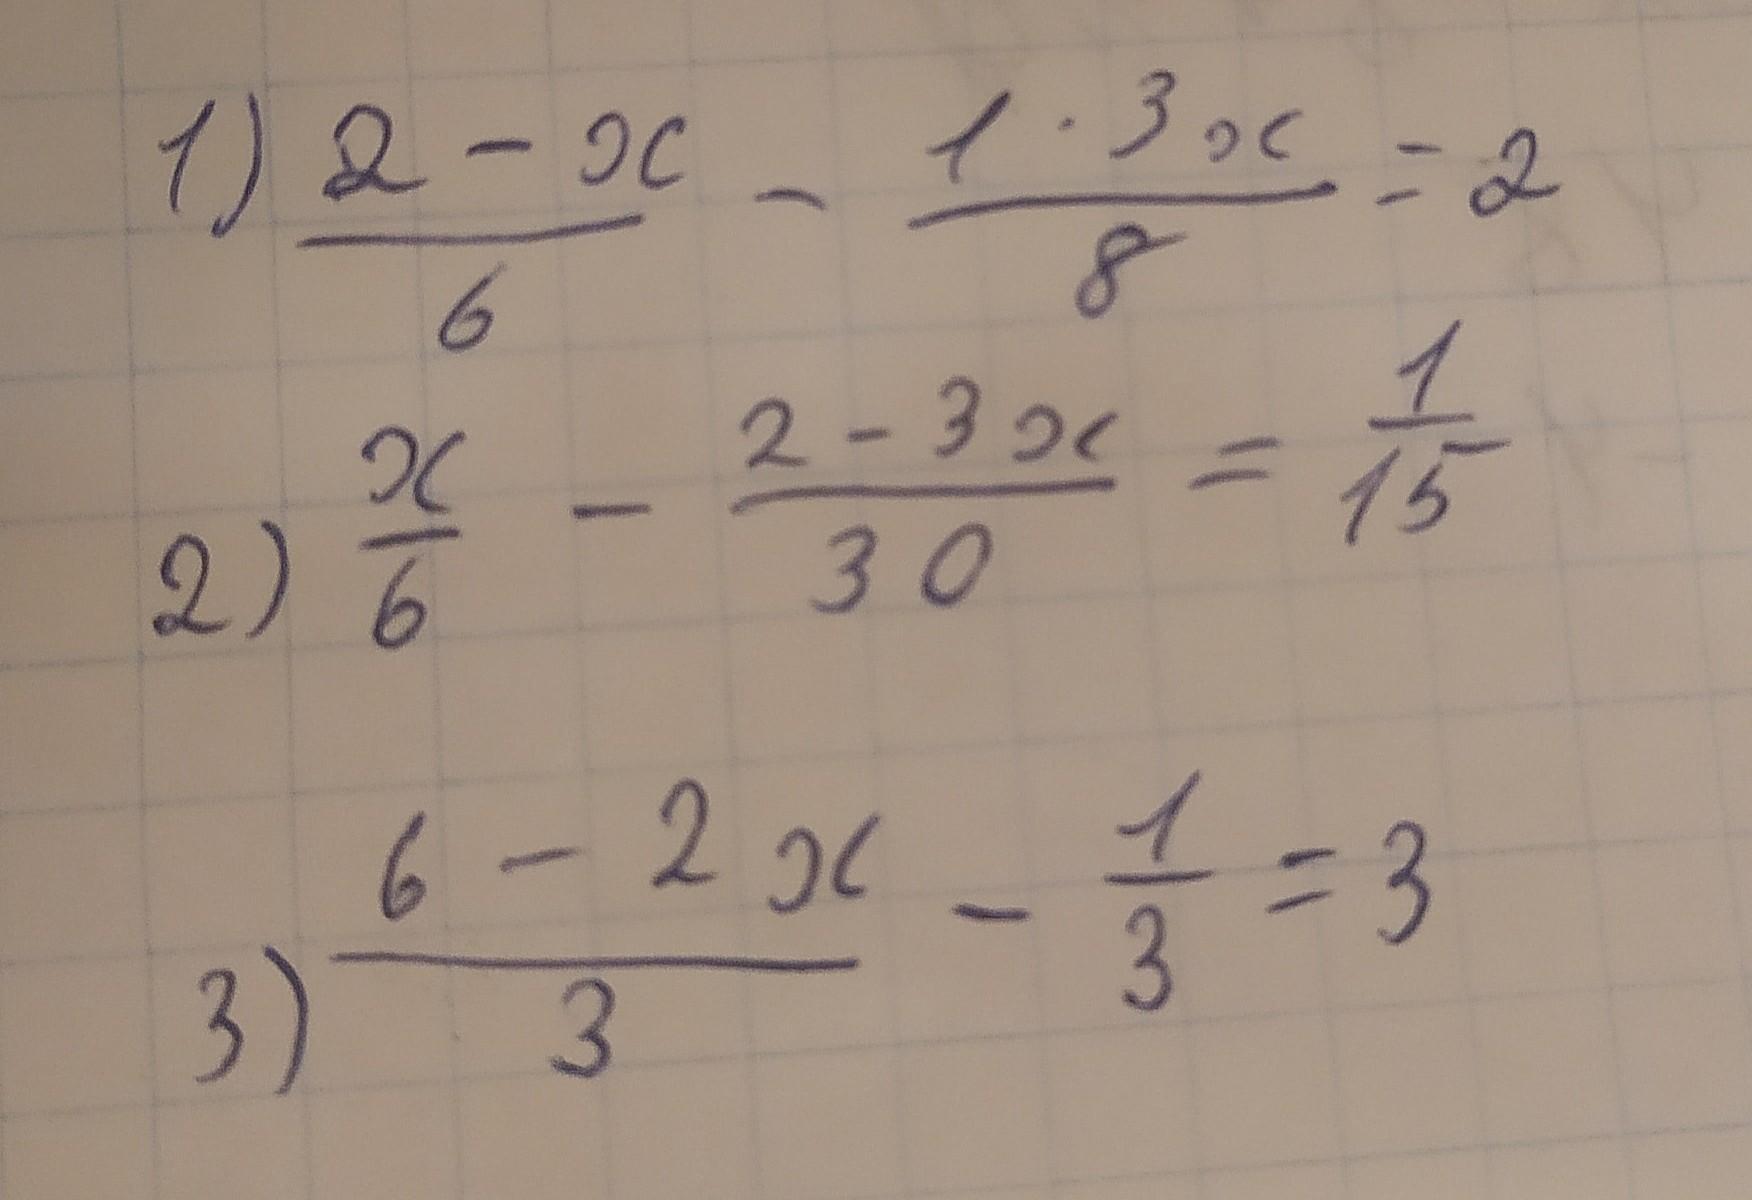 1) (2 - x)/6 - (1 · 3x)/8 = 2
2) x/6 - (2 - 3x)/30 = 1/15
3) (6 - 2x)/3 - 1/3 = 3